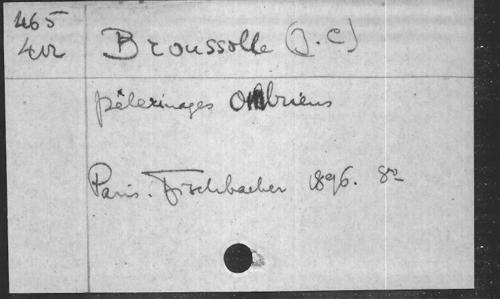 465
Broussolle (J. C)
pèlerinages Ombriens
Paris. Fischbacher 1896. 8º